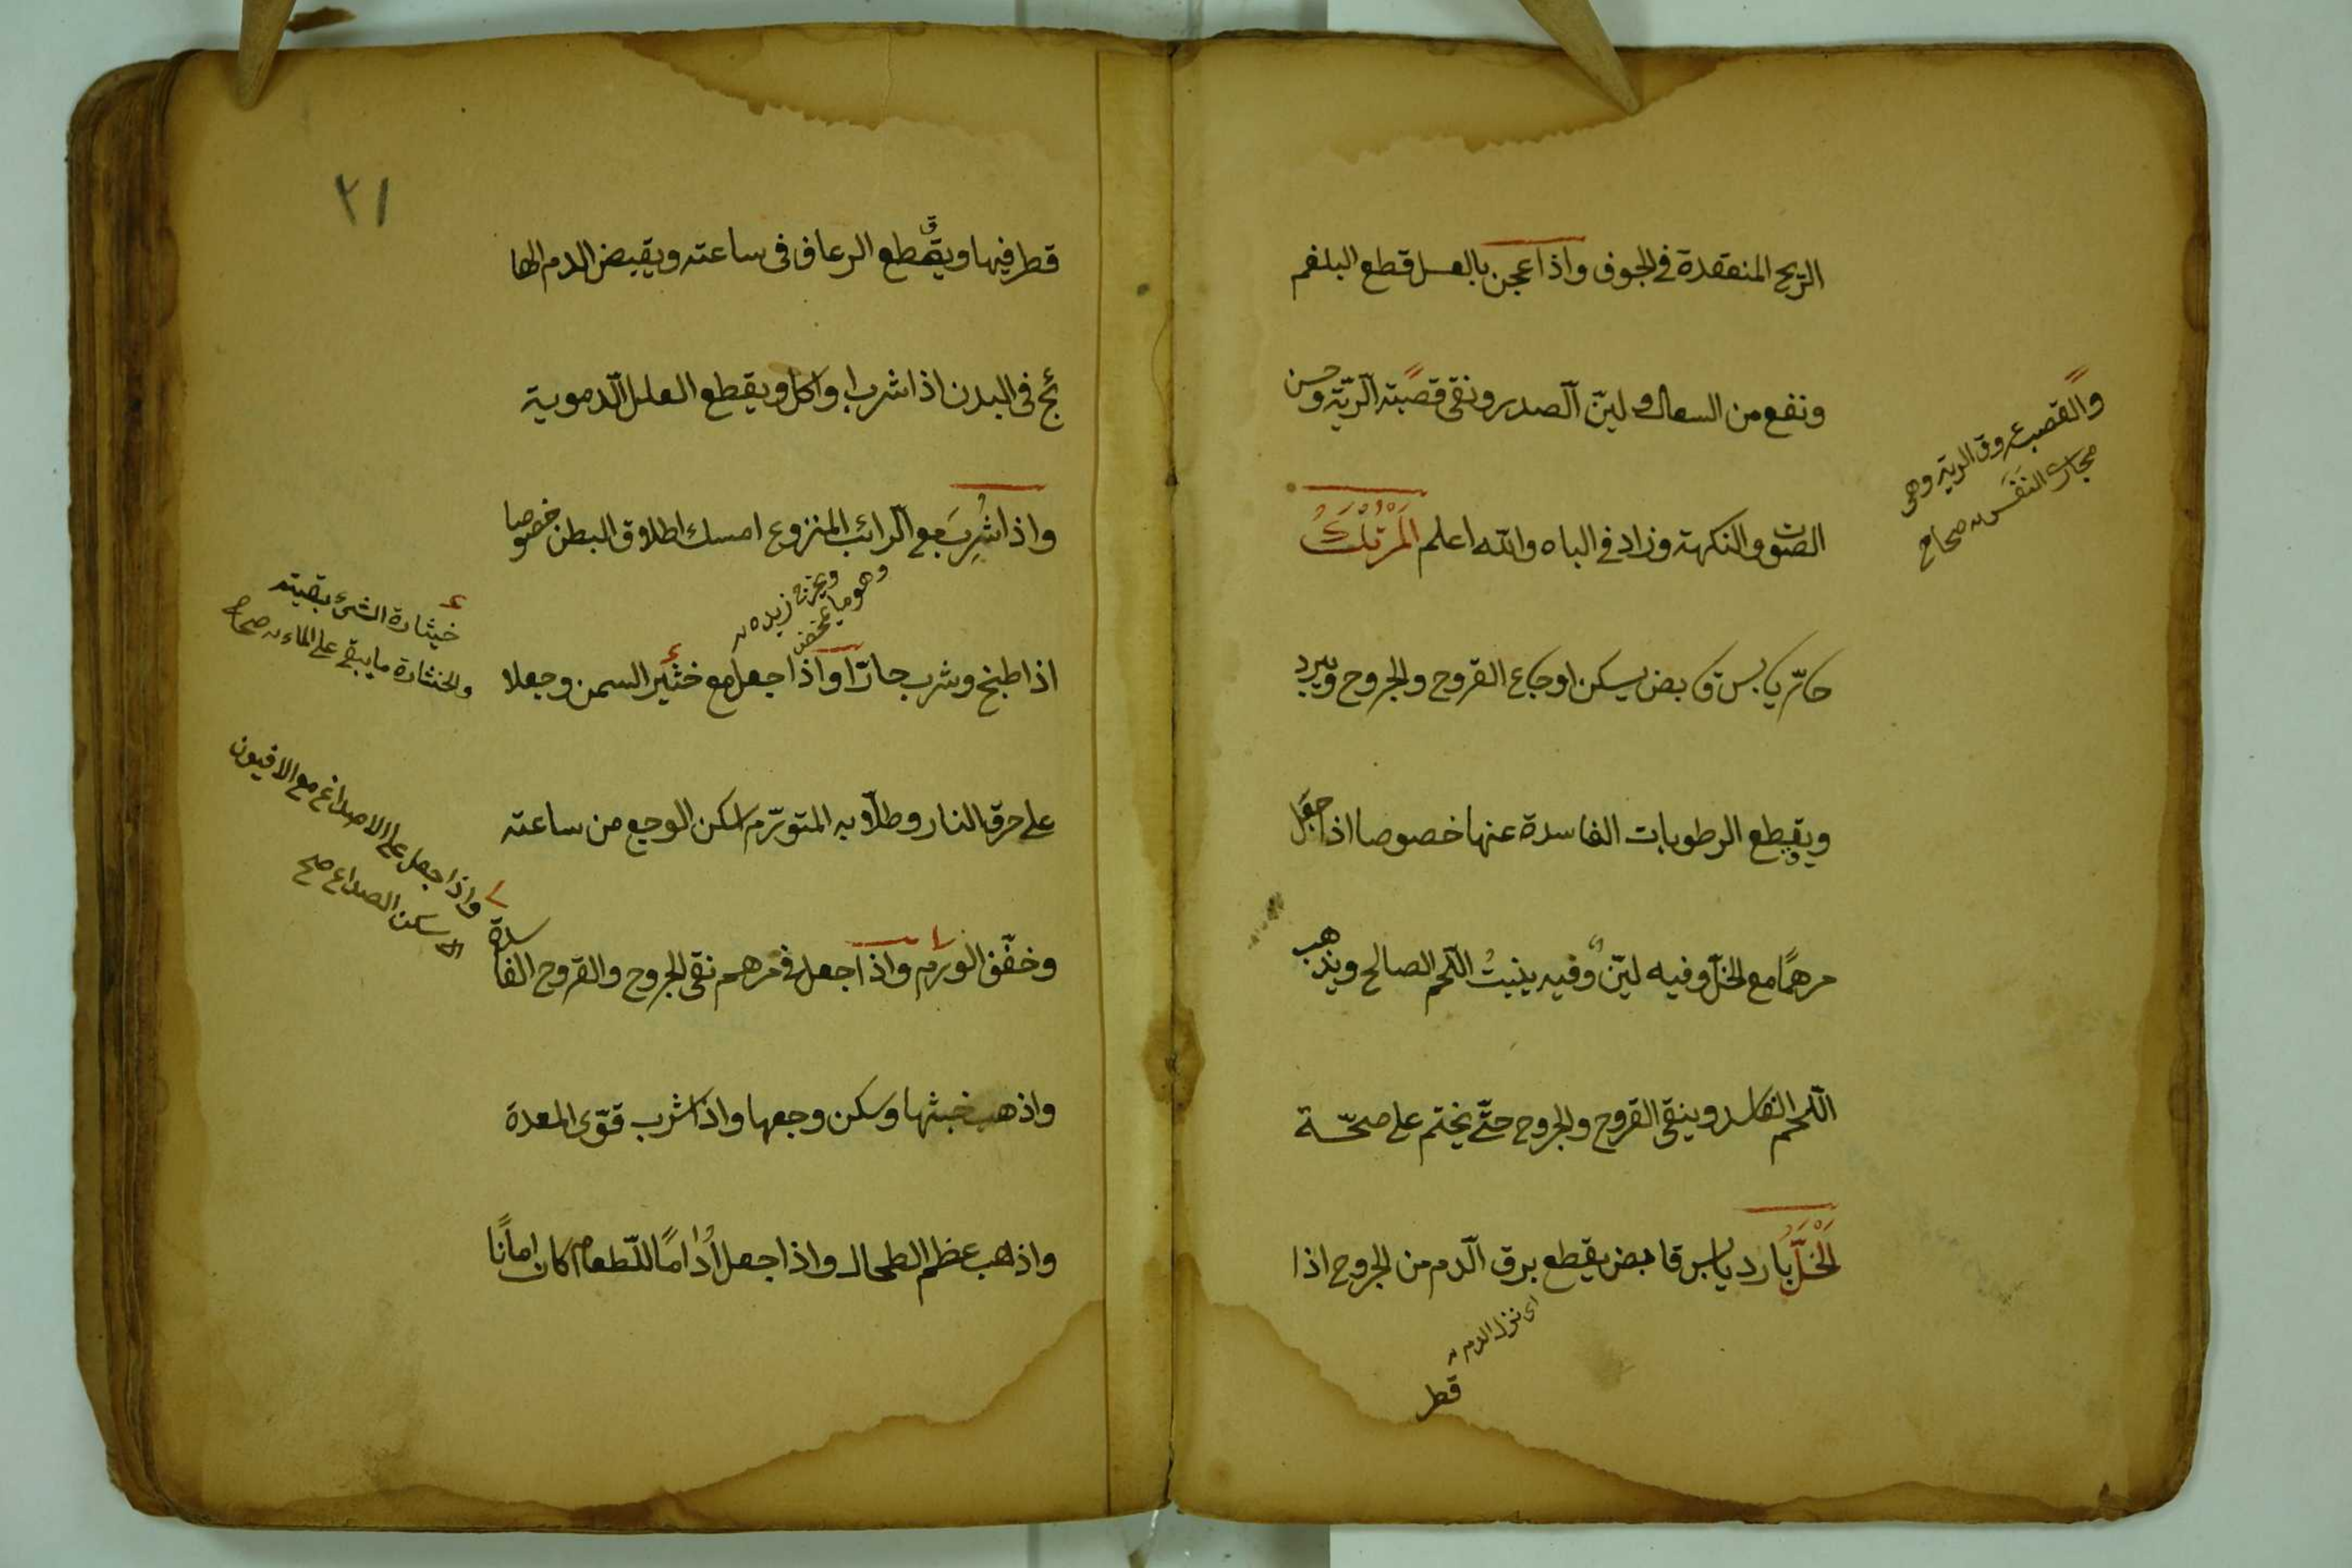 الريح المنعقدة في الجوف واذا عجن بالعسل قطع البلغم
ونفع من السعال و ليّن الصدر ونقى قصبته الريّة وحسن
الصوت والنكهة وزاد في الباه والله اعلم المَرْتَكُ
حارّ يابس قابض يسكن اوجاع القروح والجروح ويبرد
ويقطع الرطوبات الفاسدة عنها خصوصا اذا جعل
مرهمًا مع الخلّ وفيه ليّن وفيه ينبت اللحم الصالح ويذهب
اللحم الفاسد وينقى القروح والجروح حتّى يختم على صحّة
الخَلُّ بارد يابس قابض يقطع برق الدم من الجروح اذا
اى نزل الدم
قطر
والقصب عروق الرية وهى
مجارى النفَس صحاح
٢١
قطر فيها ويقطع الرعاف فى ساعته ويقبض الدم الها
ئج فى البدن اذا شرب او اكل ويقطع العلل الدموية
واذا شُرِبَ مع الرائب المنزوع امسك اطلاق البطن خصوصا
وهو ما يمخض
ويخرج زبده
اذا طبخ وشرب حارّا واذا جعل مع خثير السمن وجعلا
على حرق النار وطلا به المتورّم سكن الوجع من ساعته
وخفّف الورم واذا جعل فى مرهم نقى الجروح والقروح الفاسدة
واذهب خبثها وسكن وجعها واذا شرب قوّى المعدة
واذهب عظم الطحال واذا جعل أُدامًا للطعام كان امانًا
خيثارة الشىء بقيته
والخثارة ما يبقى على الماء صحاح
واذا جعل على الاصداغ مع الافيون
سكن الصداع صح